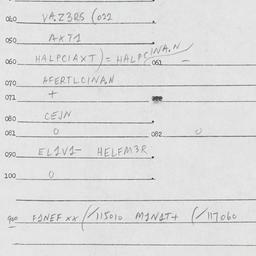 040 VA.Z3RS (022
050 AXT1
060 HALPCIAXT) = HALPCINA.N
061 -
070 AFERTLCINAN
071 +
080 CEJN
081 0 082 0
090 EL1V1- HELFM3R
100 0
900 F1NEF XX (/115010 M1N1T+ (/117060